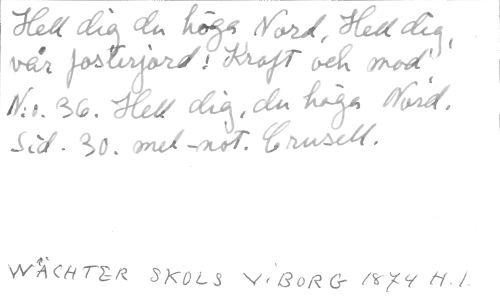 Hell dig du höga Nord, Hell dig,
vår fosterjord! Kraft och mod
N:o. 36. Hell dig, du höga Nord.
Sid. 30. mel-not. Crusell.
WÄCHTER SKOLS VIBORG 1874 H.1.